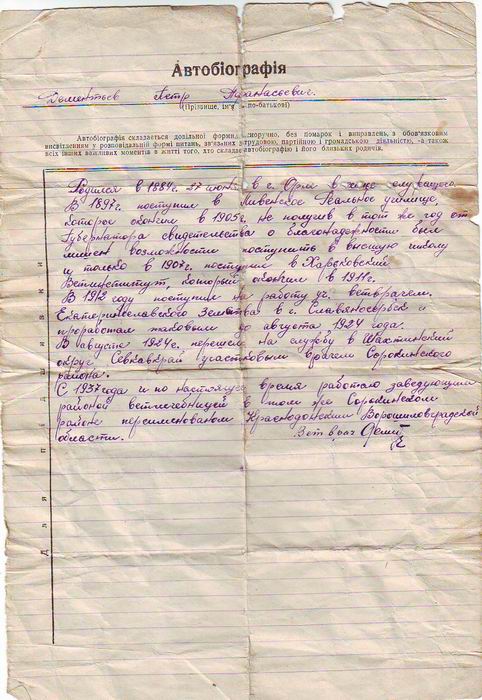 Автобіографія
Дементьев Петр Афанасьевич.
(Прізвище, ім'я по-батькові)
Автобіографія складається довільної форми, власноручно, без помарок і виправлень, з обов'язковим
висвітленням у розповідальній формі питань, зв'язаних з трудовою, партійною і громадською діяльністю, а також
всіх інших важливих моментів в житті того, хто складає автобіографію і його близьких родичів.
Родился в 1887г. 27 июня в г. Орле в семье служащего
В 1897г. поступил в Ливенское Реальное училище,
которое окончил в 1905г. не получив в тот же год от
Губернатора свидетельства о благонадежности был
лишен возможности поступить в высшую школу
и только в 1907г. поступил в Харьковский
Ветинститут, который окончил в 1911г.
В 1912 году поступил на работу уч. ветврачем
Екатеринославского Земства в г. Славяносербск и
проработал таковым до августа 1924 года.
В августе 1924г. перешел на службу в Шахтинский
округ Севкавкрай участковым врачем Сорокинского
района.
С 1937 года и по настоящее время работаю заведующим
районой ветлечебницей в том же Сорокинском
районе переименованом Краснодонским Ворошиловградской
области.
Вет врач
Для підписки